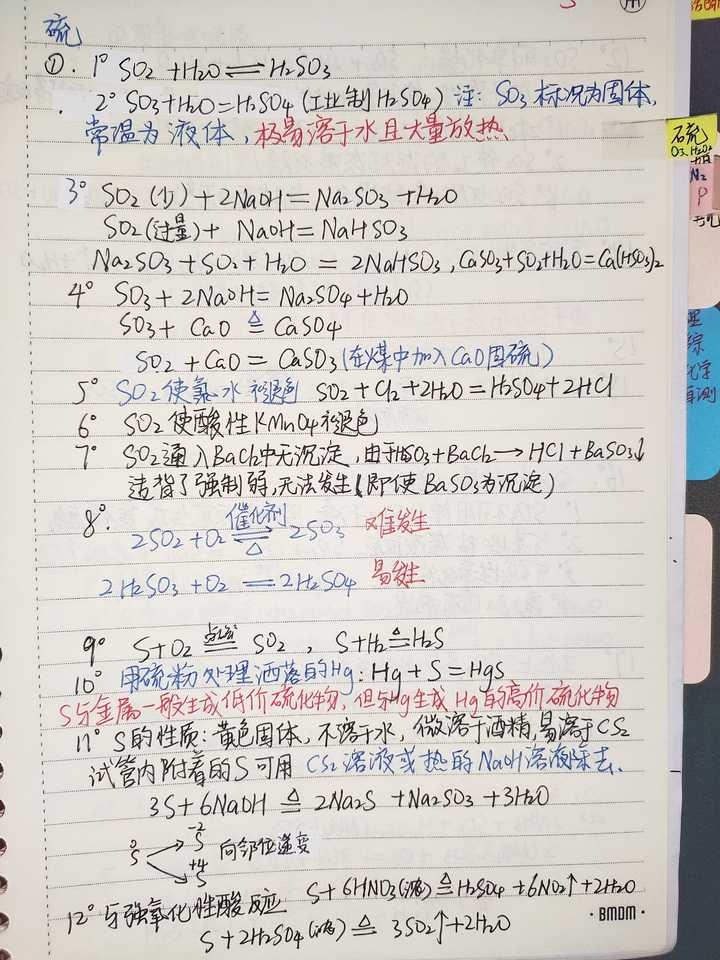 硫
①. 1° SO2 + H2O ⇌ H2SO3
2° SO3+H2O=H2SO4 (工业制H2SO4) 注: SO3标况为固体,
常温为液体, 极易溶于水且大量放热
3° SO2 (少) + 2NaOH = Na2SO3 + H2O
SO2(过量) + NaOH = NaHSO3
Na2SO3 + SO2 + H2O = 2NaHSO3, CaSO3+SO2+H2O=Ca(HSO3)2
4° SO3 + 2NaOH = Na2SO4 + H2O
SO3 + CaO ≜ CaSO4
SO2 + CaO = CaSO3 (在煤中加入CaO固硫)
5° SO2使氯水褪色 SO2 + Cl2 + 2H2O = H2SO4 + 2HCl
6° SO2使酸性KMnO4褪色
7° SO2通入BaCl2中无沉淀, 由于H2SO3 + BaCl2 → HCl + BaSO3↓
违背了强制弱, 无法发生 (即使BaSO3为沉淀)
8°. 催化剂
2SO2 + O2 ⇌ 2SO3 难发生
△
2H2SO3 + O2 = 2H2SO4 易发生
9° S + O2 点燃= SO2 , S + H2 ≜ H2S
10° 用硫粉处理洒落的Hg: Hg + S = HgS
S与金属一般生成低价硫化物, 但与Hg生成Hg的高价硫化物
11° S的性质: 黄色固体, 不溶于水, 微溶于酒精, 易溶于CS2
试管内附着的S可用 CS2溶液或热的NaOH溶液除去.
3S + 6NaOH ≜ 2Na2S + Na2SO3 + 3H2O
-2
S
0
S 向邻位递变
+4
S
12° 与强氧化性酸反应 S + 6HNO3(浓) ≜ H2SO4 + 6NO2↑ + 2H2O
S + 2H2SO4(浓) ≜ 3SO2↑ + 2H2O
·BMDM·
硫
O3, H2O2
N2
P
理
综
化学